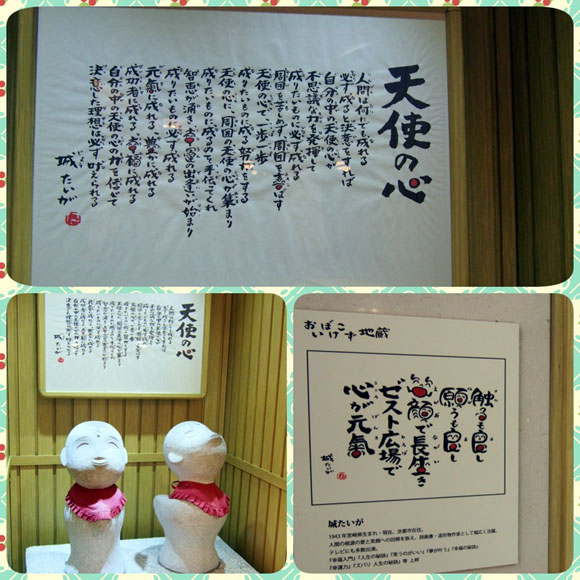 天使の心
人間は何にでも成れる
必ず成ると決意をすれば
自分の中の天使の心が
不思議な力を発揮して
成りたいものに必ず成れる
周囲を苦しめず周囲は喜ばす
天使の心で一歩一歩
成りたいものに成る努力をする
天使の心に周囲の天使の心が集まり
成りたいものに成るのを手伝ってくれ
智恵が涌き幸運の出逢いが始まり
成りたいものに必ず成れる
元氣に成れる豊かに成れる
成功者に成れる幸福に成れる
自分の中の天使の心の力を信じて
決意した理想は必ず叶えられる
城たいが
天使の心
城たいが
おぼこ
いけず地蔵
触るも宜し
願うも宜し
笑顔で長生き
ゼスト広場で
心が元氣
城たいが
城たいが
1943年宮崎県生まれ・現在、京都市在住。
人間の根源の愛と笑顔への回帰を訴え、詩画書・造形物作家として幅広く活躍。
テレビにも多数出演。
「幸福入門」「人生の秘訣」「笑うのがいい」「夢が叶う」「幸福の秘訣」
「幸運力」「ズバリ 人生の秘訣」等 上梓